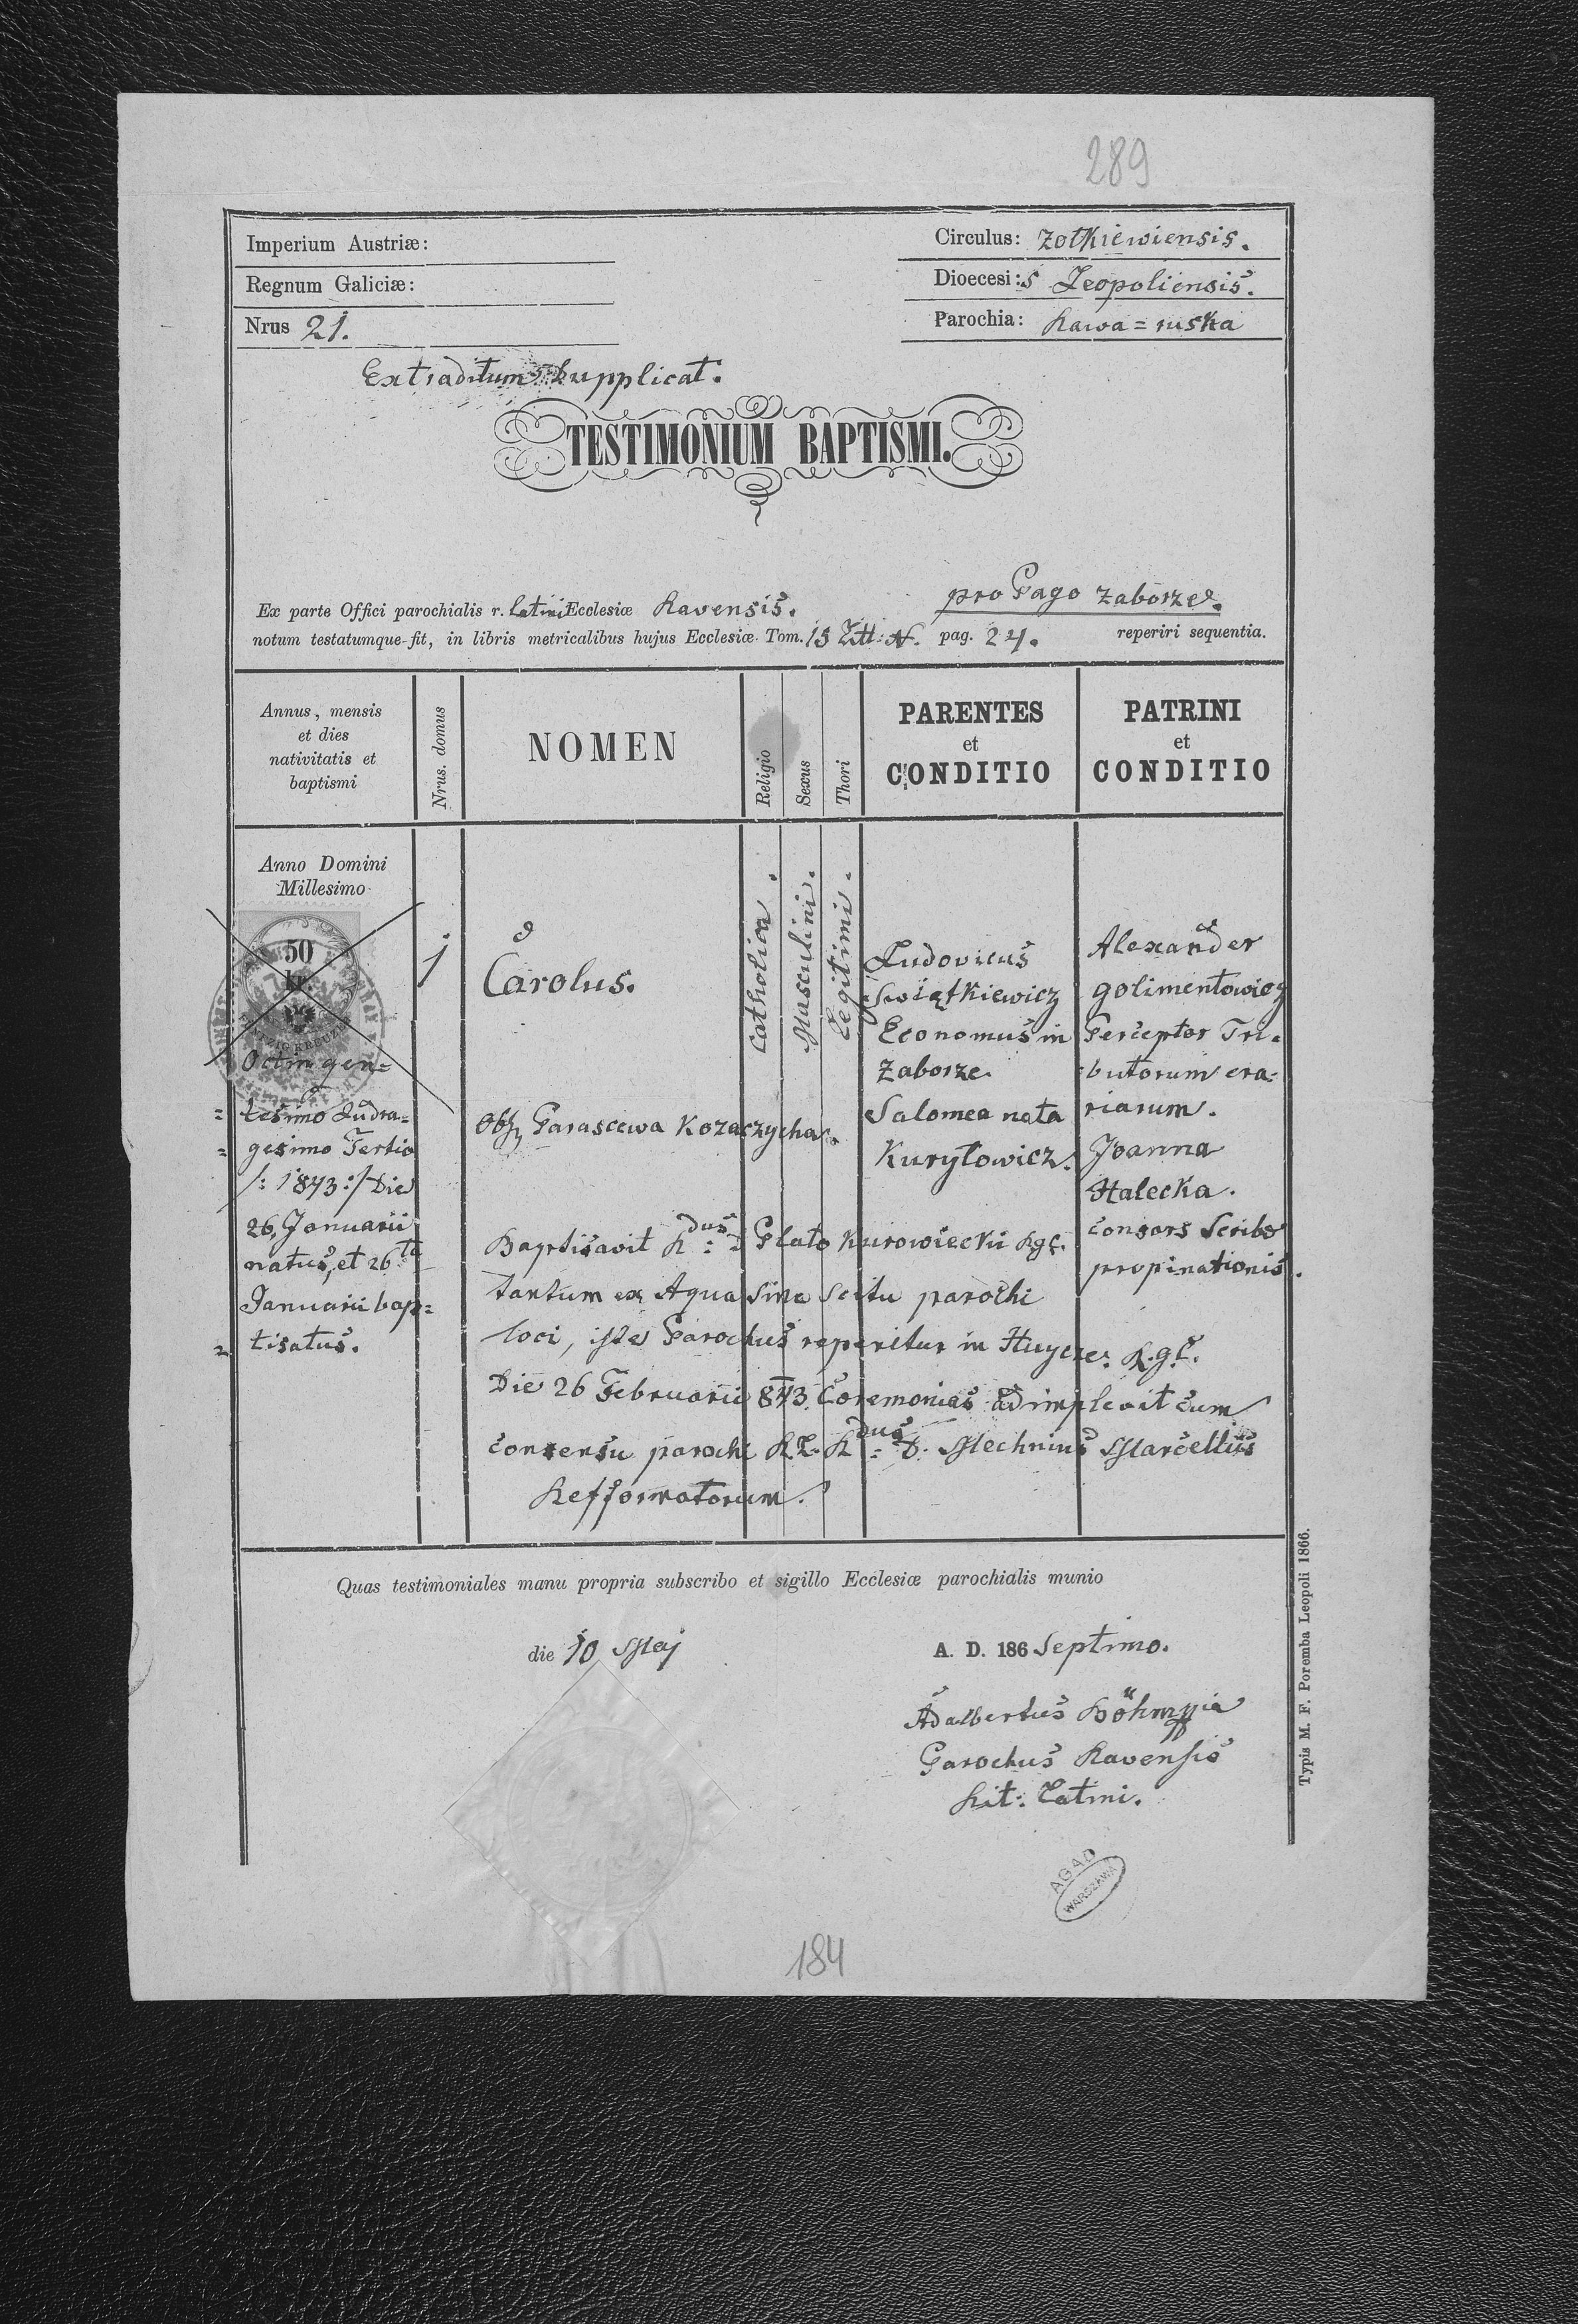 289
Imperium Austriæ:
Circulus: Zołkiewiensis.
Regnum Galiciæ:
Dioecesi:s Leopoliensis.
Nrus 21.
Parochia: Rawa=ruska
Extraditum Dupplicat.
TESTIMONIUM BAPTISMI.
pro Pago Zaborze.
Ex parte Offici parochialis r. Latini Ecclesiæ Ravensis.
notum testatumque fit, in libris metricalibus hujus Ecclesiæ Tom. 15 Litt: N. pag. 24. reperiri sequentia.
Annus, mensis
et dies
nativitatis et
baptismi
Nrus. domus
NOMEN
Religio
Sexus
Thori
PARENTES
et
CONDITIO
PATRINI
et
CONDITIO
Anno Domini
Millesimo
50
kr.
Octingen=
=tesimo Qudra=
=gesimo Tertio
/: 1843 :/ Die
26, Januarii
natus, et 26ta
Januarii bap=
=tisatus.
1
Carolus.
Obs. Parascewa Kozaczycha.
Catholica.
Masculini.
Legitimi.
Ludovicus
Swiątkiewicz
Economus in
Zaborze.
Salomea nata
Kuryłowicz.
Alexander
Golimentowicz
Perceptor Tri=
=butorum era=
riarum.
Joanna
Halecka.
consors Scribe
propinationis.
Baptisavit Rdus: D Plato Kurowiecki R.g.c.
tantum ex Aqua sine scitu parochi
loci, iste Parochus reperitur in Huycze: R.g.c.
Die 26 Februarii 843. Ceremonias adimplevit cum
consensu parochi R.L. Rdus: D. Mechnius Marcellus
Refformatorum.
Quas testimoniales manu propria subscribo et sigillo Ecclesiæ parochialis munio
die 10 Maj
A. D. 186 Septimo.
Adalbertus Böhm
Parochus Ravensis
Rit: Latini.
Typis M. F. Poremba Leopoli 1866.
AGAD
WARSZAWA
184